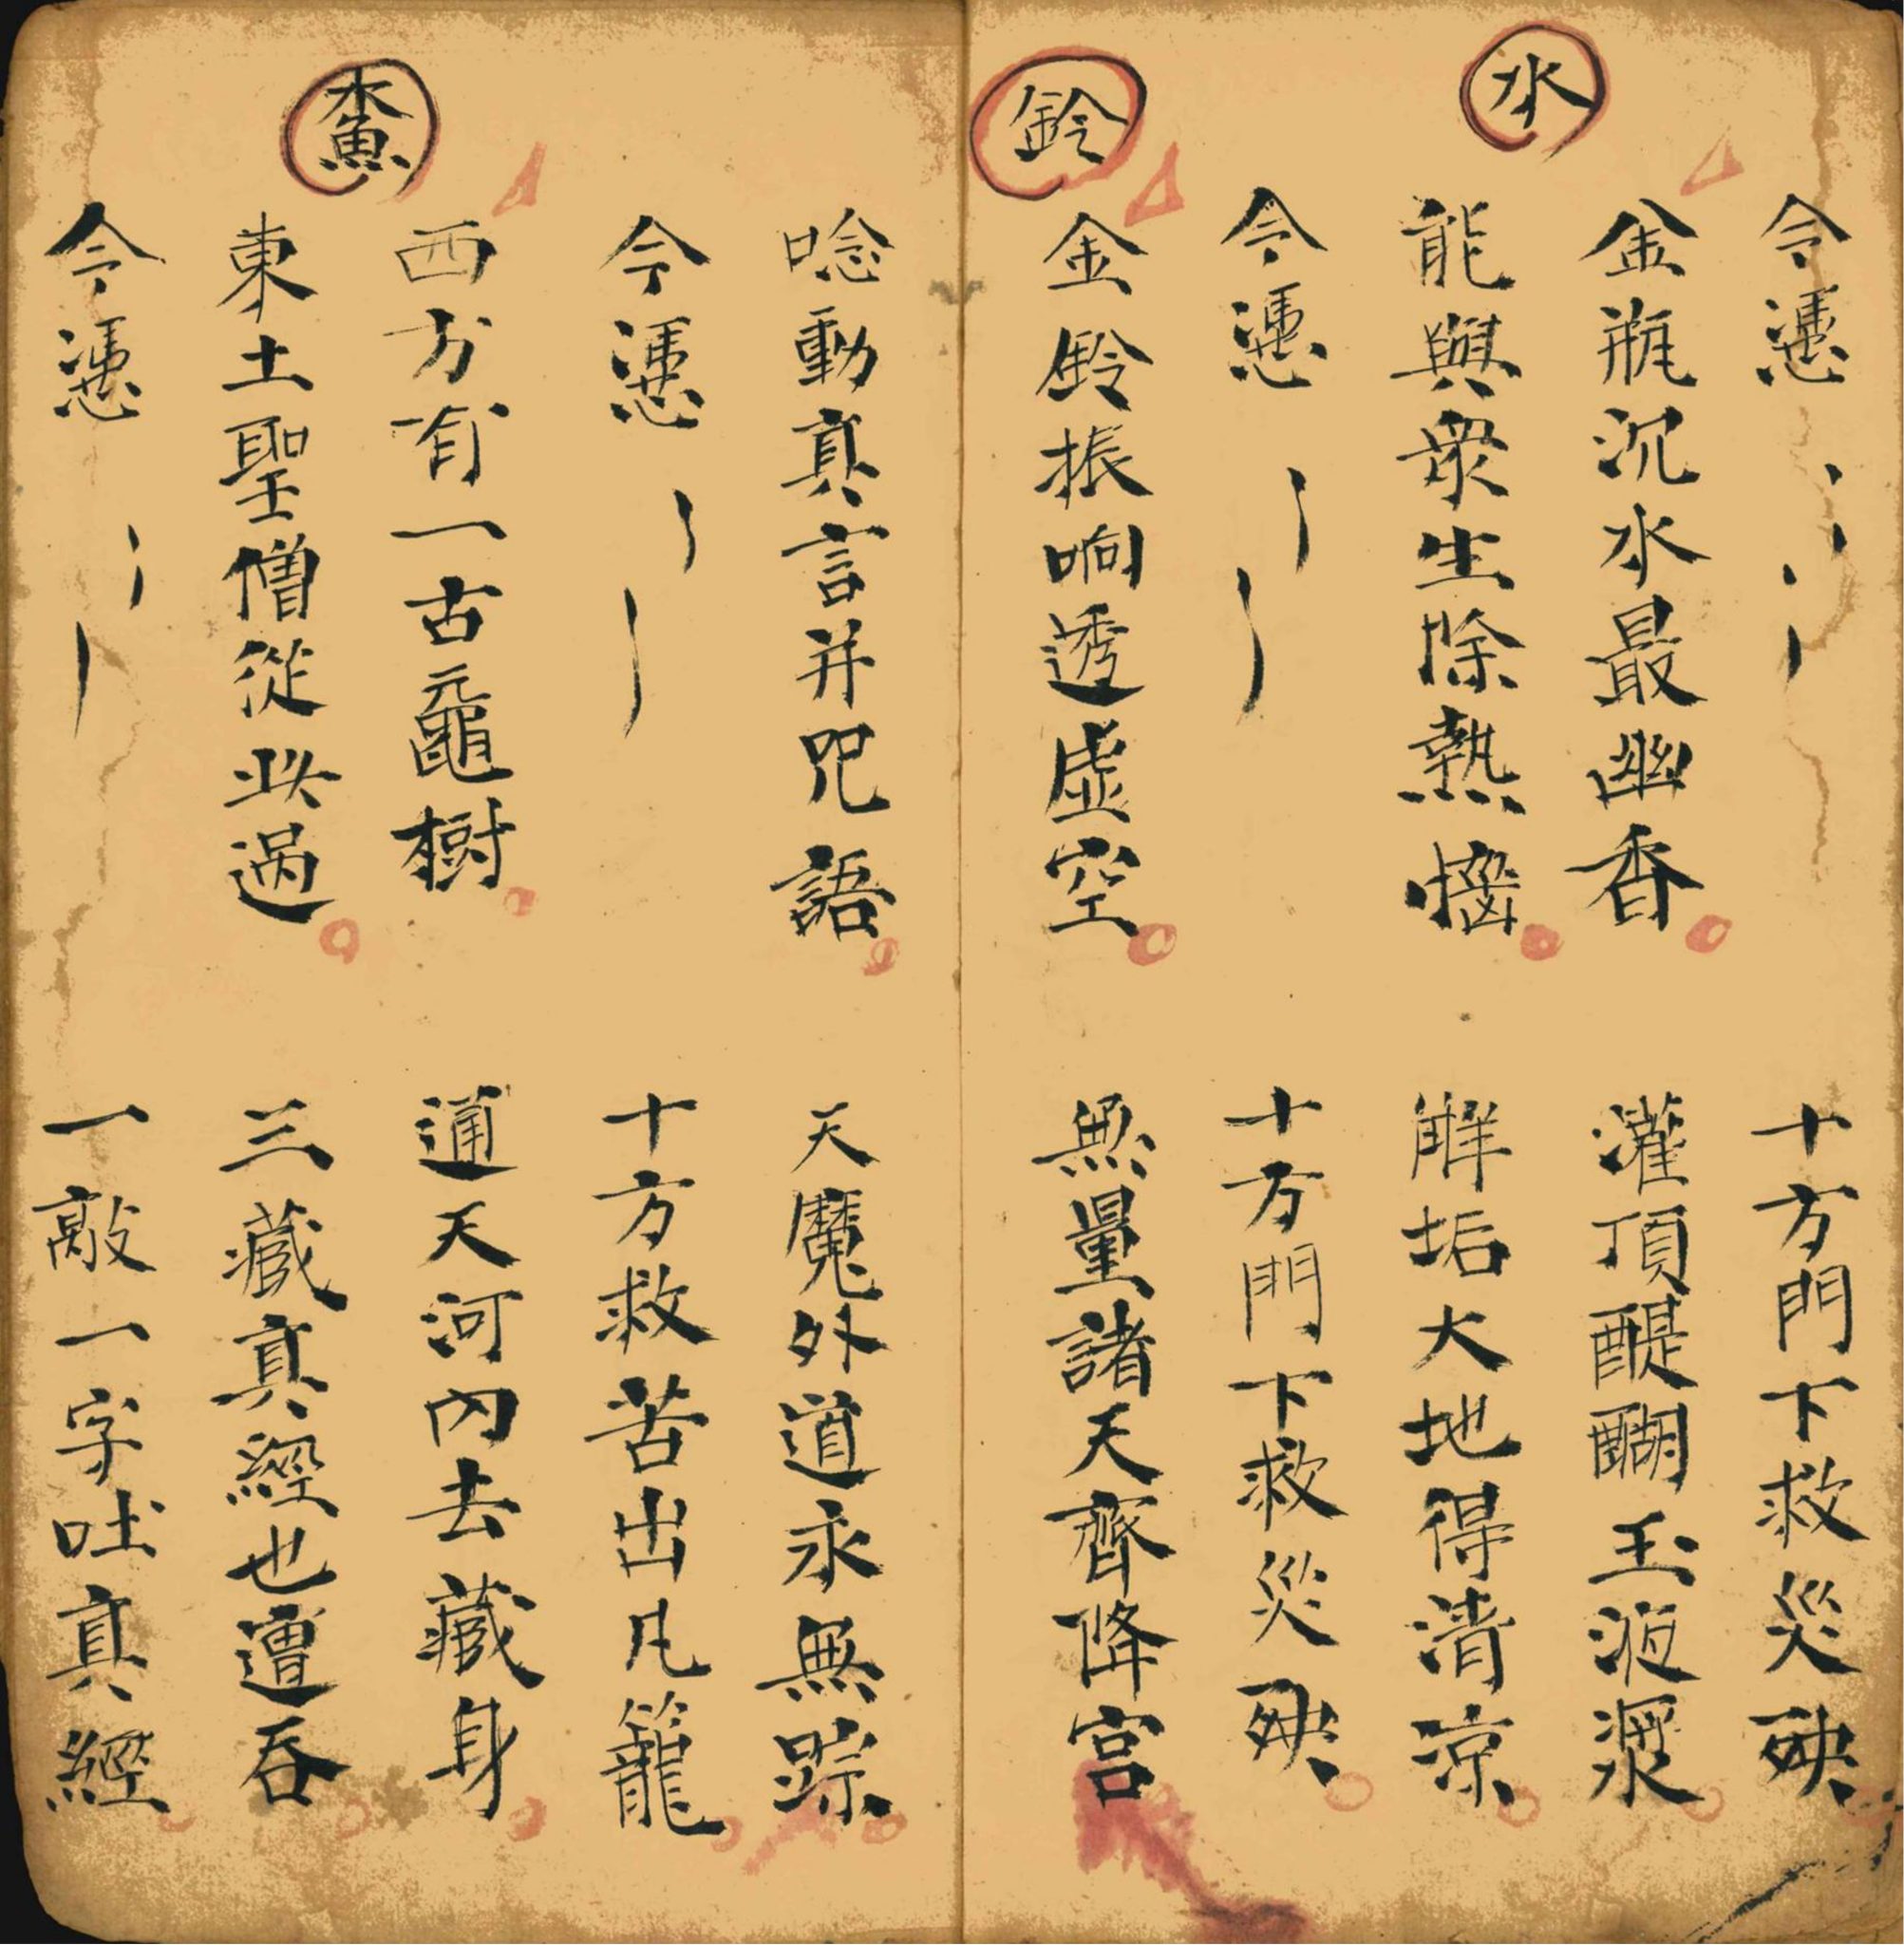 今憑 十方門下救災殃
水
金瓶沉水最幽香 灌頂醍醐玉液漿
能與衆生除熱惱 解垢大地得清凉
今憑 十方門下救災殃
鈴
金鈴振响透虚空 無量諸天齊降宫
唸動真言并咒語 天魔外道永無踪
今憑 十方救苦出凡籠
木魚
西方有一古黿樹 通天河内去藏身
東土聖僧從此過 三藏真經也遭吞
今憑 一敲一字吐真經